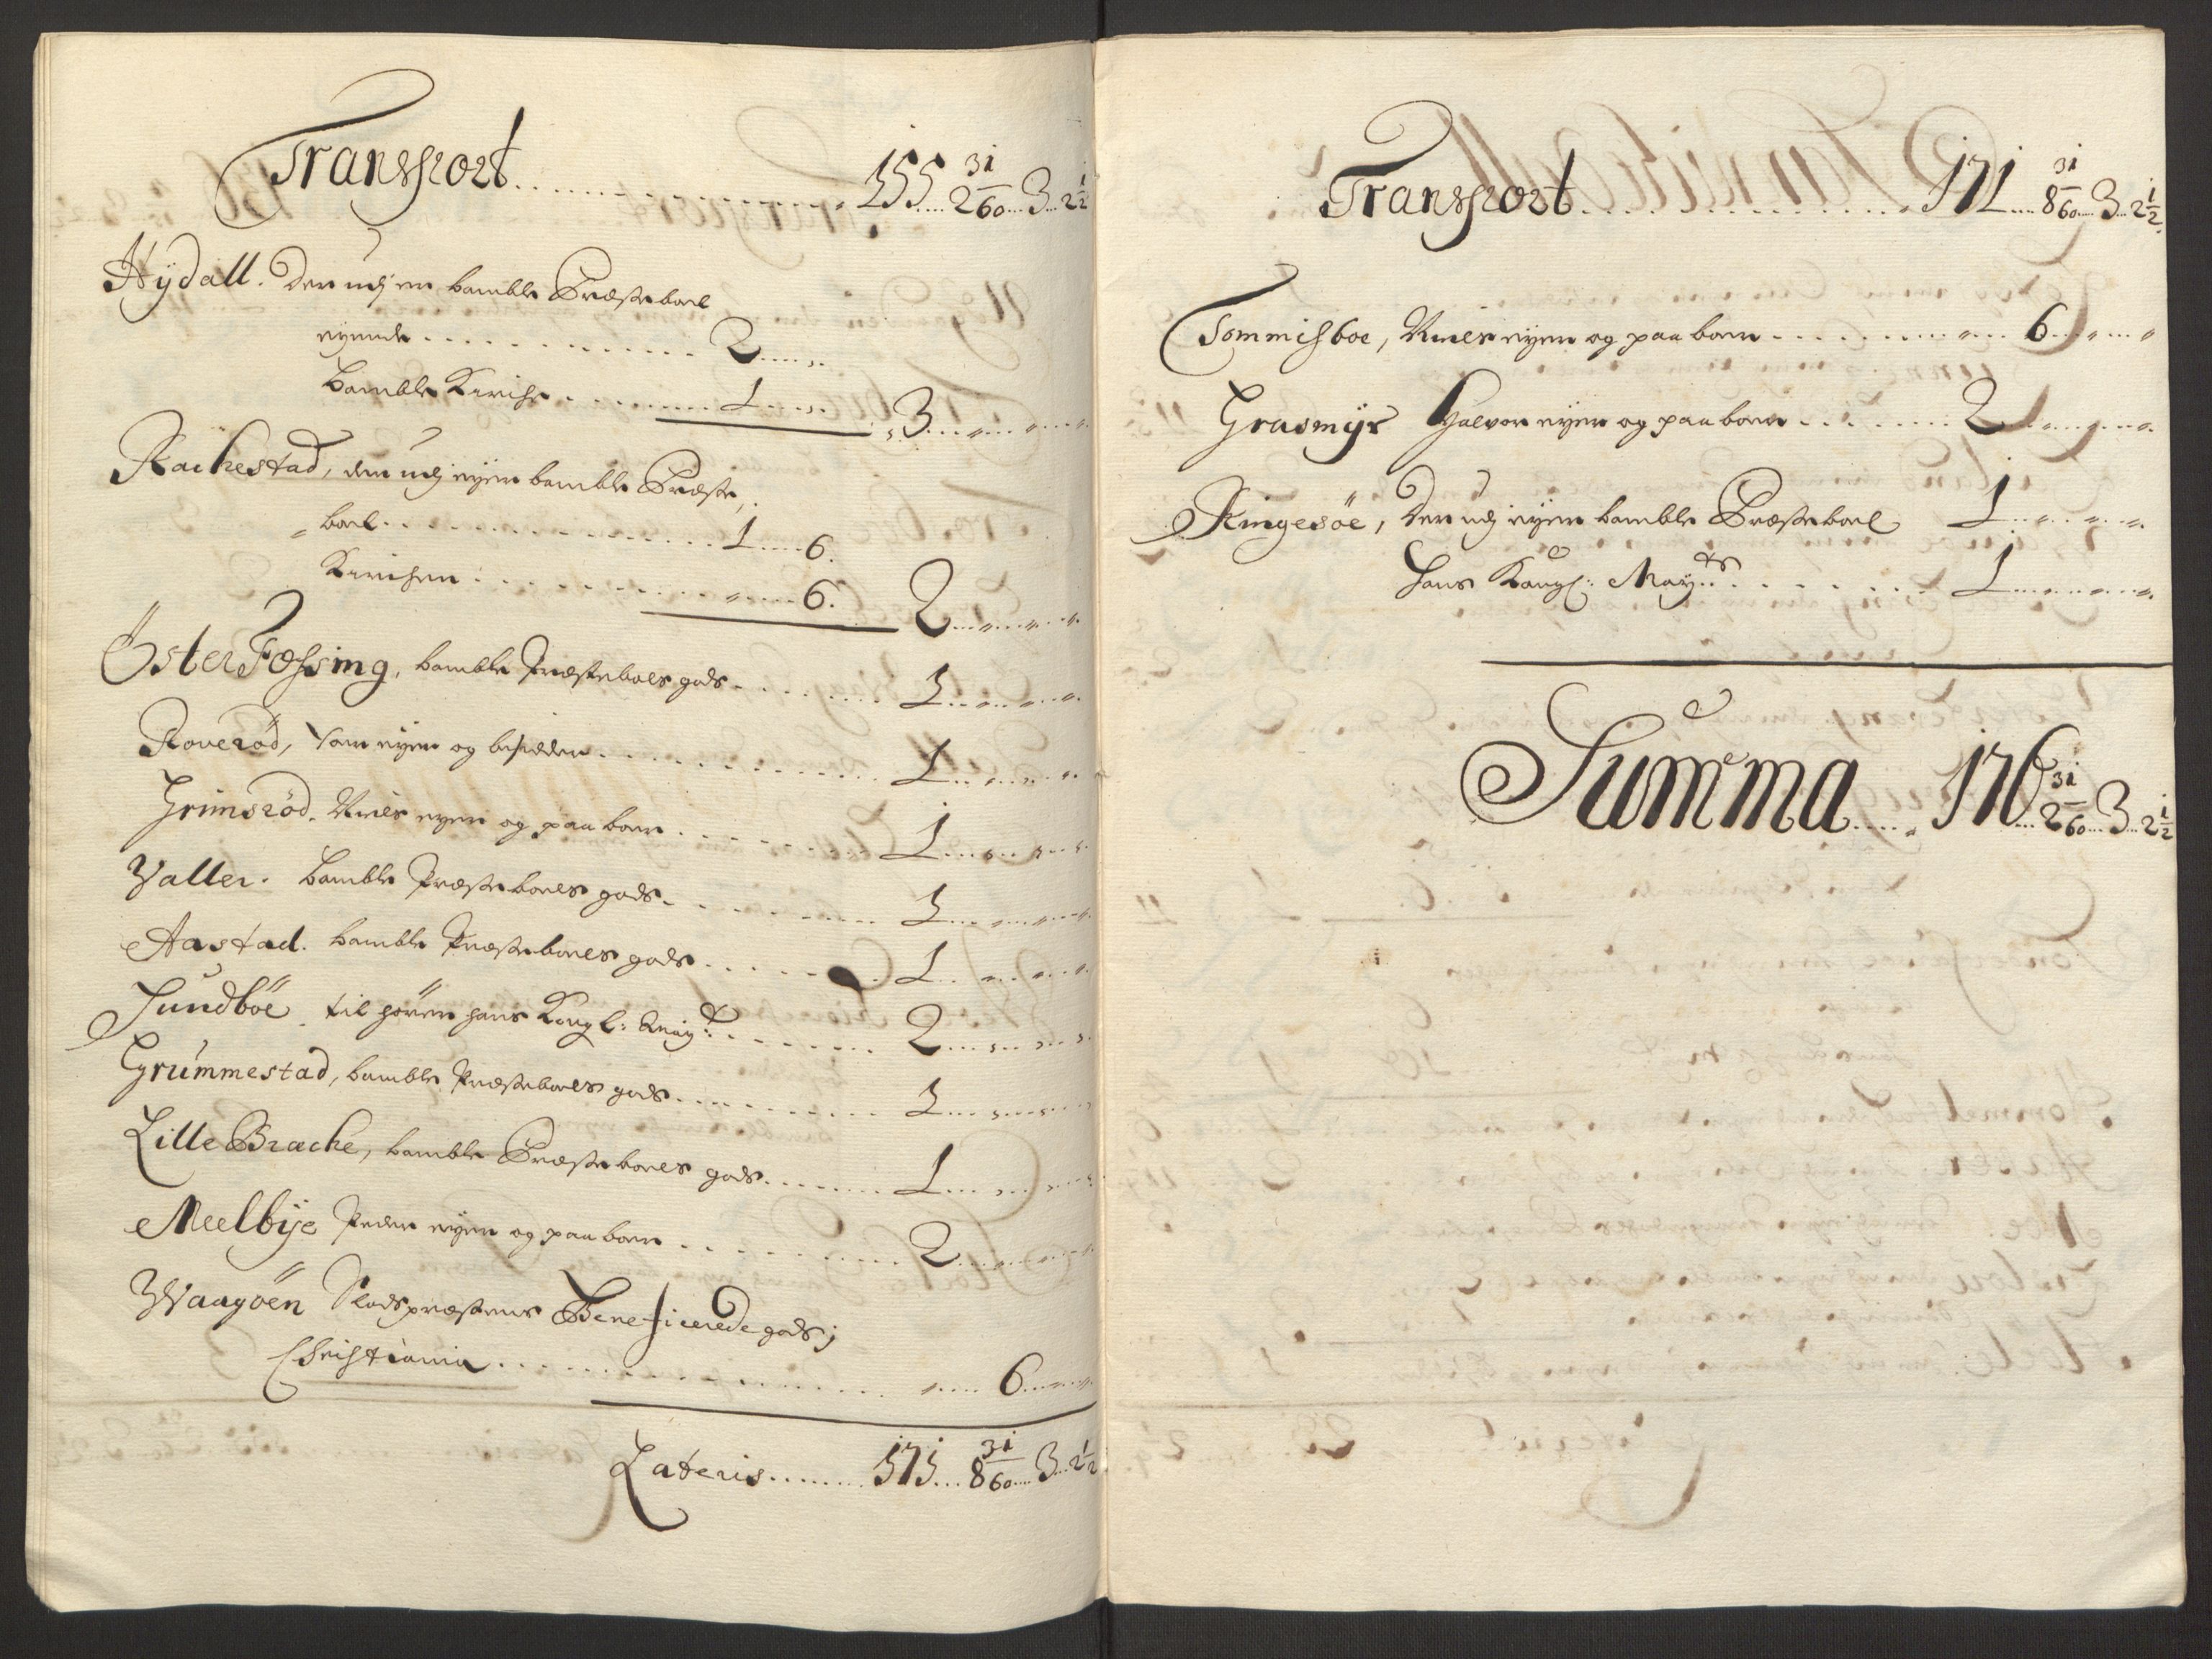 Transport . . . 155 . . 2 31/60 . . 3 . . 2 1/2
Hydall. Der udj er bamble Præsteboel
eyende . . . 2 . . .
bamble Kirche . . . 1 . . . 3 . . .
Rachestad, der udj eyer bamble Præste
boel . . . 1 . . 6.
Kirchen . . . 6. 2 . . .
Öster Fossing, bamble Præsteboels gods . . . 1 . . .
Roverød, eyer og besidder . . . 1 . . .
Grimsröd. eyer og paa boer . . . 1 . . .
Valler. bamble Præsteboels gods . . . 1 . . .
Aastad. bamble Præsteboels gods . . . 1 . . .
Sundböe til hörer hans Kongl: May:t . . . 2 . . .
Grummestad, bamble Præsteboels gods . . . 1 . . .
Lille Bracke, bamble Præsteboels gods . . . 1 . . .
Meelbye Peder eyer og paa boer . . . 2 . . .
Waagöen Præstens Beneficerede gods j
Christiania . . . 6 . . .
Lateris . . . 171 . . 8 31/60 . . 3 . . 2 1/2
Transport . . . 171 . . 8 31/60 . . 3 . . 2 1/2
Tommisboe, eyer og paa boer . . . 6 . . .
Grasmyr Halvor eyer og paa boer . . . 2 . . .
Ringesöe, Der udj eyer bamble Præsteboel 1 . . .
Hans Kongl: May:ts . . . 1 . . .
Summa . . . 176 . . 2 31/60 . . 3 . . 2 1/2